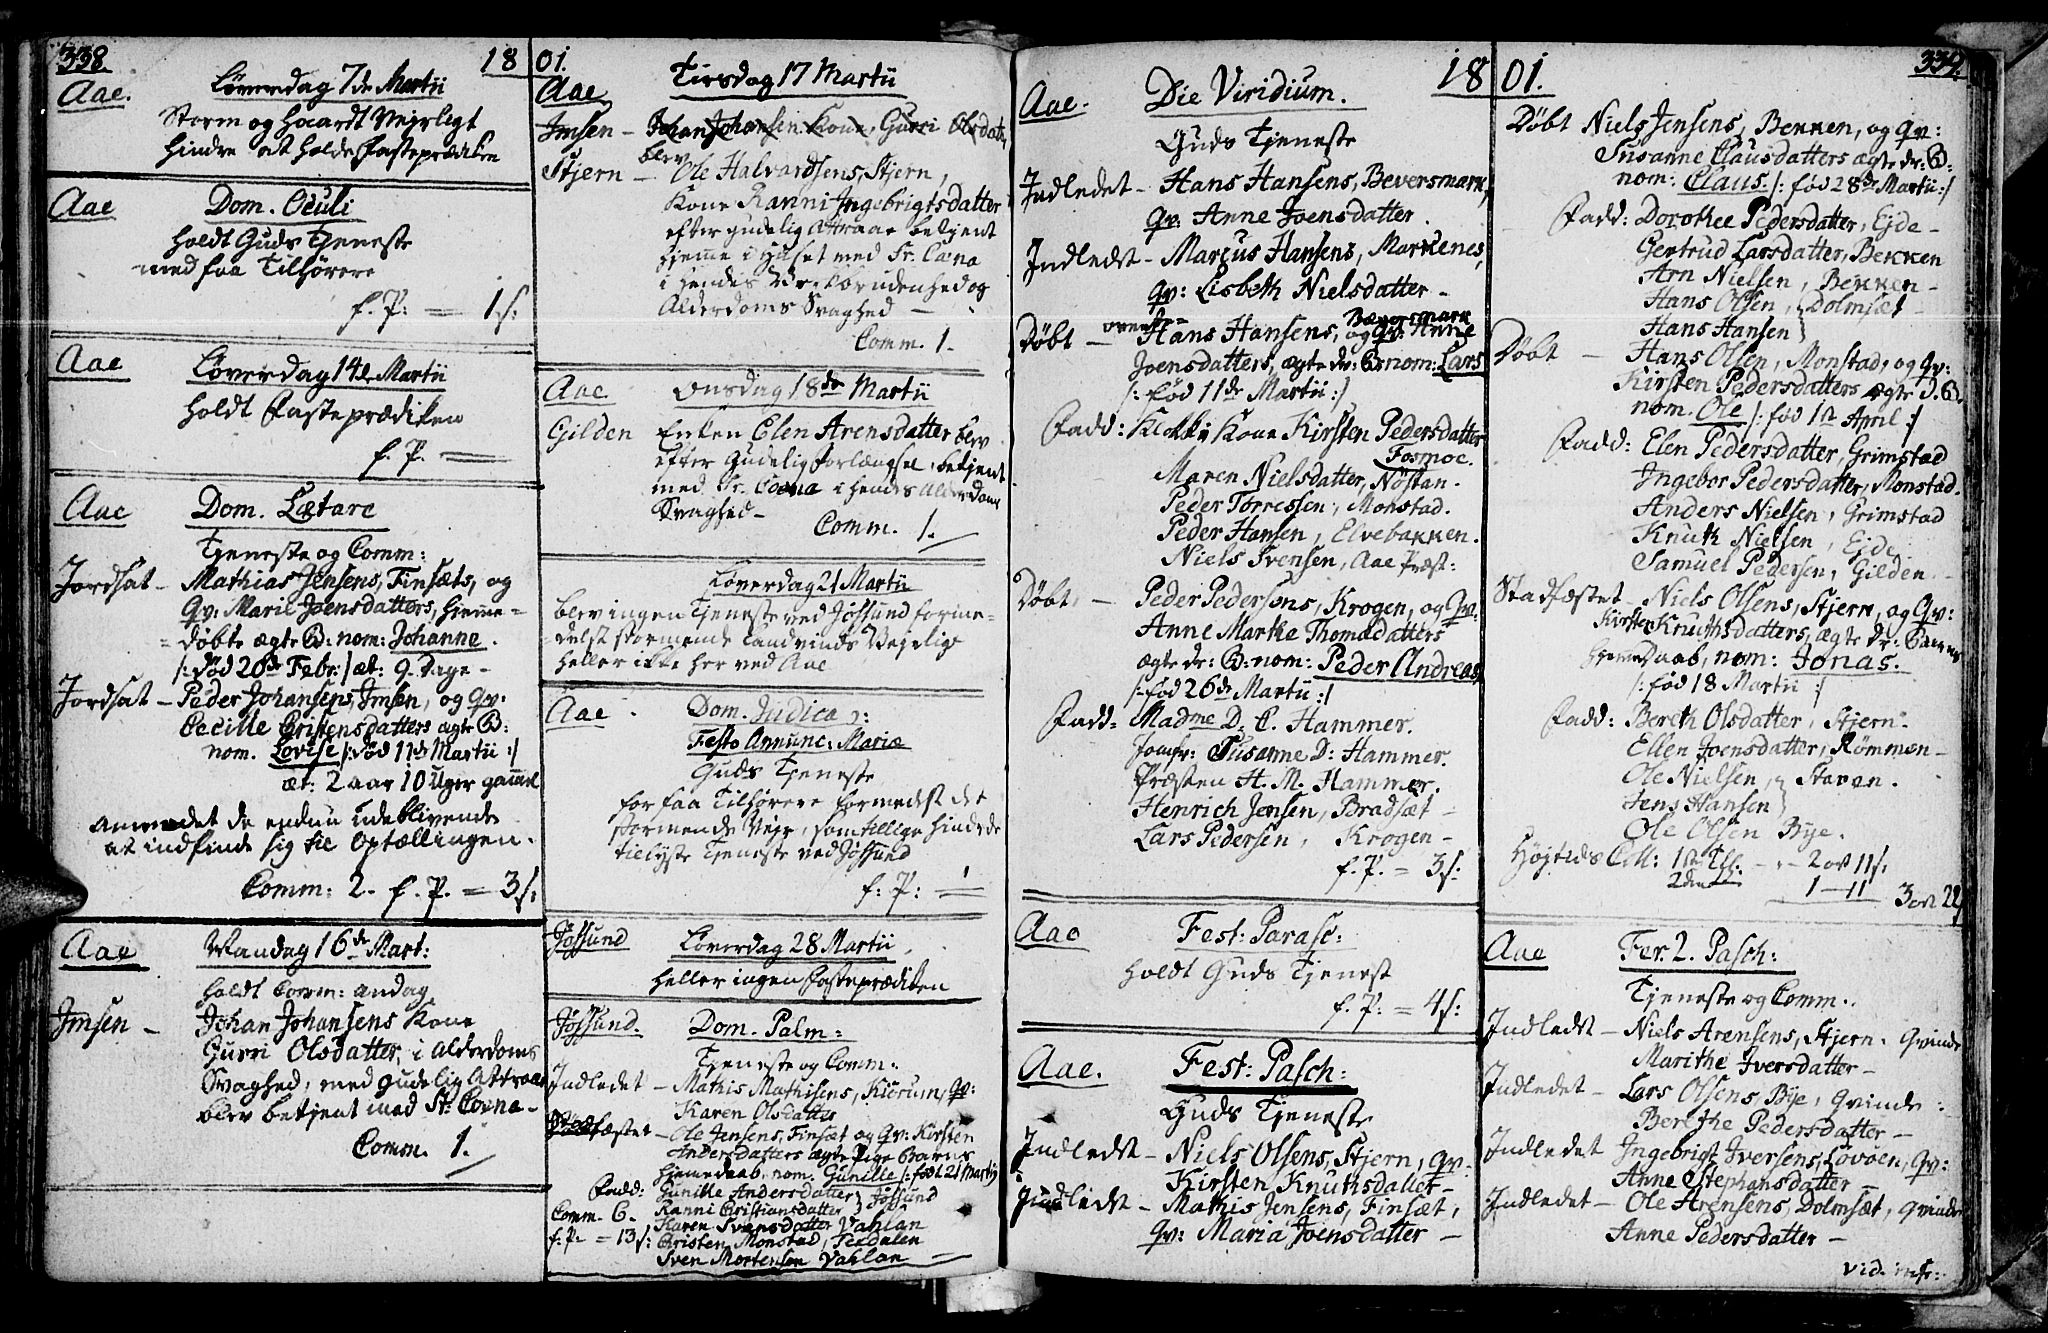 338. 18
Aae. Löverdag 7de Martii
Storm og haardt Vejrligt
hindre at holde fasteprædiken
Aae Dom. Oculi
holdt Guds Tjeneste
med faa Tilhörere
f. P: = 1 s:
Aae Löverdag 14de Martii
holdt Fasteprædiken
f. P. =
Aae Dom. Lætare
Tjeneste og Comm:
Jordsat - Mathias Jensens, Finsæts, og
Qv: Marie Joensdatters, hjemme=
=döbte ægte B: nom: Johanne.
/: död 26de Febr: / æt: 9 Dage -
Jordsat - Peder Johansens, Imsen, og Qv:
Cecille Cristensdatters ægte B:
nom. Lovise /: död 11de Martii :/
æt: 2 aar 10 Uger gammel
anmeldet de endnu udeblivende
at indfinde sig til Optællingen.
Comm: 2. f. P. = 3 s:
Aae Mandag 16de Mart:
holdt Comm: andag
Imsen - Johan Johansens Kone
Gurri Olsdatter, i Alderdoms
Svaghed, med gudelig Attraae
blev betjent med St: Coena -
Comm. 1.
01.
Aae Tirsdag 17 Martii
Imsen - Johan Johansen Kone, Gurri Olsdatr
blev
Stjern - Ole Halvardsens, Stjern,
Kone Ranni Ingebrigtsdatter
efter gudelig Attraae betjent
hjemme i Huset med Sr. Coena
i hendes
Alderdoms Svaghed -
Comm. 1.
Aae Onsdag 18de Martii
Gilden Enken Elen Arensdatter blev
efter Gudelig forlængsel, betjent
med Sr. Coena i hendes Alderdoms
Svaghed -
Comm. 1.
Löverdag 21 Martii
blev ingen Tjeneste ved Jössund forme=
=delst stormende Landvinds Vejrlig
heller ikke her ved Aae
Aae Dom. Judica,:
Festo Annunc: Mariæ
Guds Tjeneste
for faa Tilhörere formedelst det
stormende Vejr, som tillige hindrede
tillyste Tjeneste ved Jössund
f: P: =
Jössund Löverdag 28 Martii,
heller ingen Fasteprædiken
Jössund. Dom. Palm:
Tjeneste og Comm:
Indledet - Mathis Mathisens, Kierum, Qv:
Karen Olsdatter
Stadfæstet - Ole Jensens, Finsæt og Qv: Kirsten
Andersdatters ægte Pige Barns
Hjemedaab, nom. Gunille /: föd 21 Martij
Fadd: Gunille Andersdatter } Jössund
Comm. 6. Ranni Christiansdatter
Karen Svensdatter Vahlan
f. P. = 13 s: Christen Monstad, Texdalen
Sven Mortensen Vahlan
18
Aae. Die Viridium.
Guds Tjeneste
Indledet - Hans Hansens, Beversmark,
Qv: Anne Joensdatter.
Indledet - Marcus Hansens, Markenes,
Qv: Lisbeth Nielsdatter -
Bæversmark
Döbt - Hans Hansens, og Qv: Anne
Joensdatters, ægte dr: B: nom: Lars
/: föd 11de Martii :/
Fadd: Kone Kirsten Pedersdatter
Fosmoe.
Maren Nielsdatter, Nöstan.
Peder Torressen, Monstad.
Peder Hansen, Elvebakken.
Niels Svensen, Aae Præst:
Döbt, - Peder Pedersens, Krogen, og Qv:
Anne Marthe Thomædatters
ægte dr: B: nom: Peder Andreas
/: föd 26de Martii :/
Fadd: Madme D: C. Hammer.
Jomfr: Susanne D: Hammer.
Præsten H. M. Hammer.
Henrich Jensen, Bradsæt -
Lars Pedersen, Krogen -
f. P. = 3 s:
Aae Fest: Parasc:
holdt Guds Tjenest
f. P: = 4 s:
Aae. Fest: Pasch:
Guds Tjeneste
Indledt - Niels Olsens, Stjern, Qv:
Kirsten Knuthsdatter -
Indledt - Mathis Jensens, Finsæt,
Qv: Maria Joensdatter -
01. 339.
Döbt Niels Jensens, Bekken, og Qv:
Susanne Clausdatters ægte dr: B:
nom: Claus. /: föd 28de Martii :/
Fadd: Dorothee Pedersdatter, Eide -
Gertrud Larsdatter, Bekken
Arn Nielsen, Bekken -
Hans Olsen, } Dolmsæt -
Hans Hansen
Döbt - Hans Olsen, Monstad, og Qv:
Kirsten Pedersdatters ægte D. B.
nom. Ole /: föd 1te April :/
Fadd: Elen Pedersdatter, Grimstad
Ingebor Pedersdatter, Monstad.
Anders Nielsen, Grimstad
Knuth Nielsen, Eide.
Samuel Pedersen, Gilden -
Stadfæstet - Niels Olsens, Stjern, og Qv:
Kirsten Knuthsdatters, ægte dr: Barns
hjemedaab, nom: Jonas.
/: föd 18 Martii :/
Fadd: Bereth Olsdatter, Stjern -
Ellen Joensdatter, Römmen -
Ole Nielsen, } Staven.
Jens Hansen
Ole Olsen Bÿe.
Höjtids Coll: 1ste Tfl. - - 2 ort 11 s.
2den - 1 - 11 3 ort 22 s
Aae Fer. 2. Pasch:
Tjeneste og Comm.
Indledt - Niels Arensens, Stjern, Qvinde
Marithe Iversdatter -
Indledt - Lars Olsens, Bÿe, Qvinde:
Berethe Pedersdatter -
Indledet Ingebrigt Iversens, Lovöen, Qv:
Anne Stephansdatter -
Indledet - Ole Arensens, Dolmsæt, Qvinde
Anne Pedersdatter -
vid. infr: